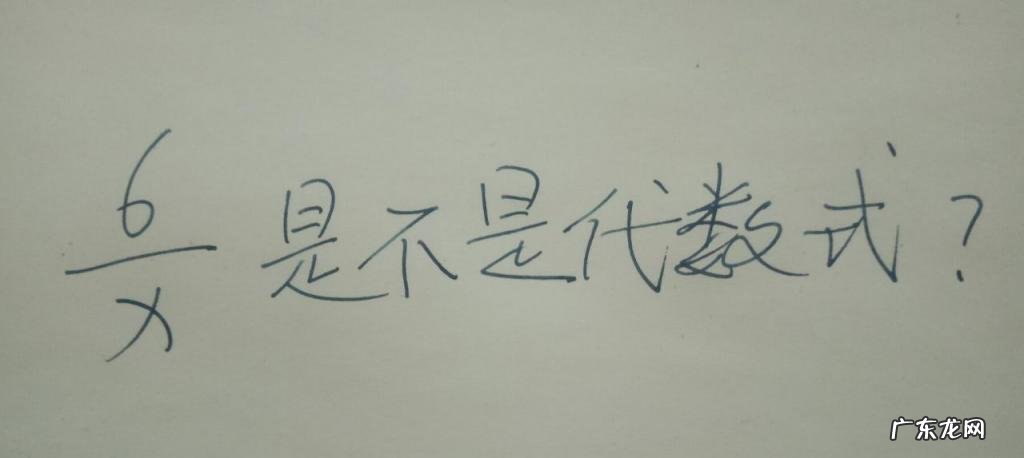 6/x是不是代数式?
广东龙网